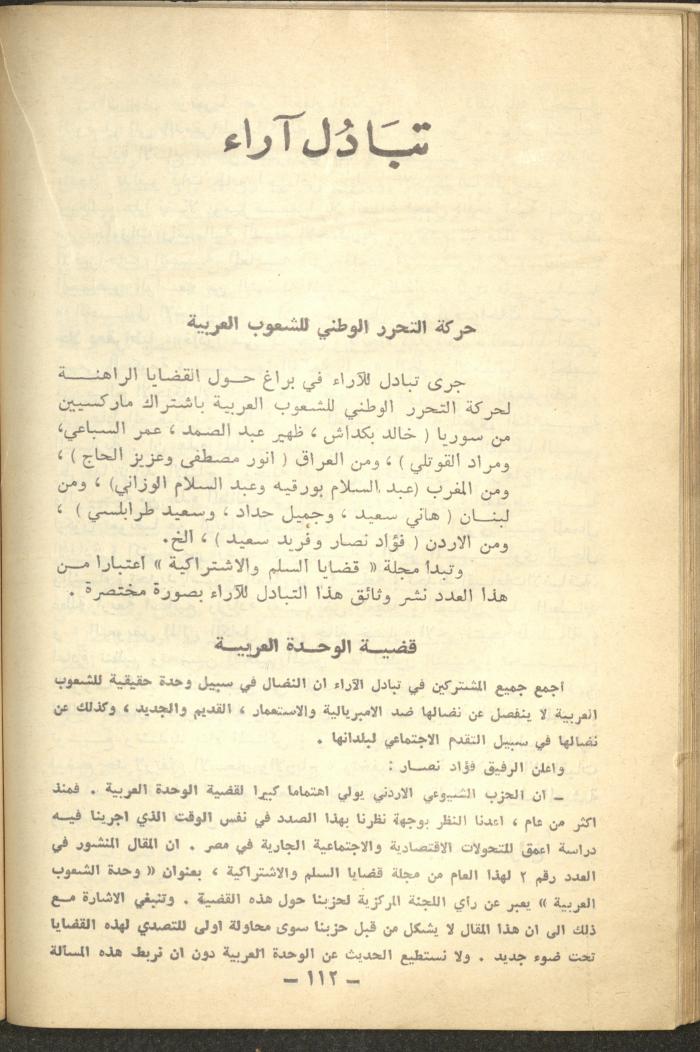 تبَادُل آراء
حركة التحرر الوطني للشعوب العربية
جرى تبادل للآراء في براغ حـول القضايا الراهنـــة
لحركة التحرر الوطني للشعوب العربية باشتراك ماركسيين
من سوريا ( خالد بكداش ، ظهير عبد الصمد ، عمر السباعي،
ومراد القوتلي ) ، ومن العراق ( انور مصطفى وعزيز الحاج ) ،
ومن المغرب (عبد السلام بورقيه وعبد السلام الوزاني) ، ومن
لبنـان ( هاني سعيد ، وجميل حداد ، وسعيد طرابلسي ) ،
ومن الاردن ( فؤاد نصار وفريد سعيد ) ، الخ.
وتبدا مجلة « قضايا السلم والاشتراكية » اعتبارا مـن
هذا العدد نشر وثائق هذا التبادل للآراء بصورة مختصرة .
قضيــة الوحـدة العربيــة
اجمع جميع المشتركين في تبادل الآراء ان النضال في سبيل وحدة حقيقية للشعوب
العربية لا ينفصل عن نضالها ضد الامبريالية والاستعمار ، القديم والجديد ، وكذلك عن
نضالها في سبيل التقدم الاجتماعي لبلدانها .
واعلن الرفيق فؤاد نصـار :
ـ ان الحزب الشيوعي الاردني يولي اهتماما كبيرا لقضية الوحدة العربية . فمنذ
اكثر من عام ، اعدنا النظر بوجهة نظرنا بهذا الصدد في نفس الوقت الذي اجرينا فيـه
دراسة اعمق للتحولات الاقتصادية والاجتماعية الجارية في مصر . ان المقال المنشور في
العدد رقم ٢ لهذا العام من مجلة قضايا السلم والاشتراكية ، بعنوان « وحدة الشعوب
العربية » يعبر عن رأي اللجنة المركزية لحزبنا حول هذه القضية . وتنبغي الاشارة مـع
ذلك الى ان هذا المقال لا يشكل من قبل حزبنا سوى محاولة اولى للتصدي لهذه القضايا
تحت ضوء جديد . ولا نستطيع الحديث عن الوحدة العربية دون ان نربط هذه المسالة
ـ ١١٢ ـ